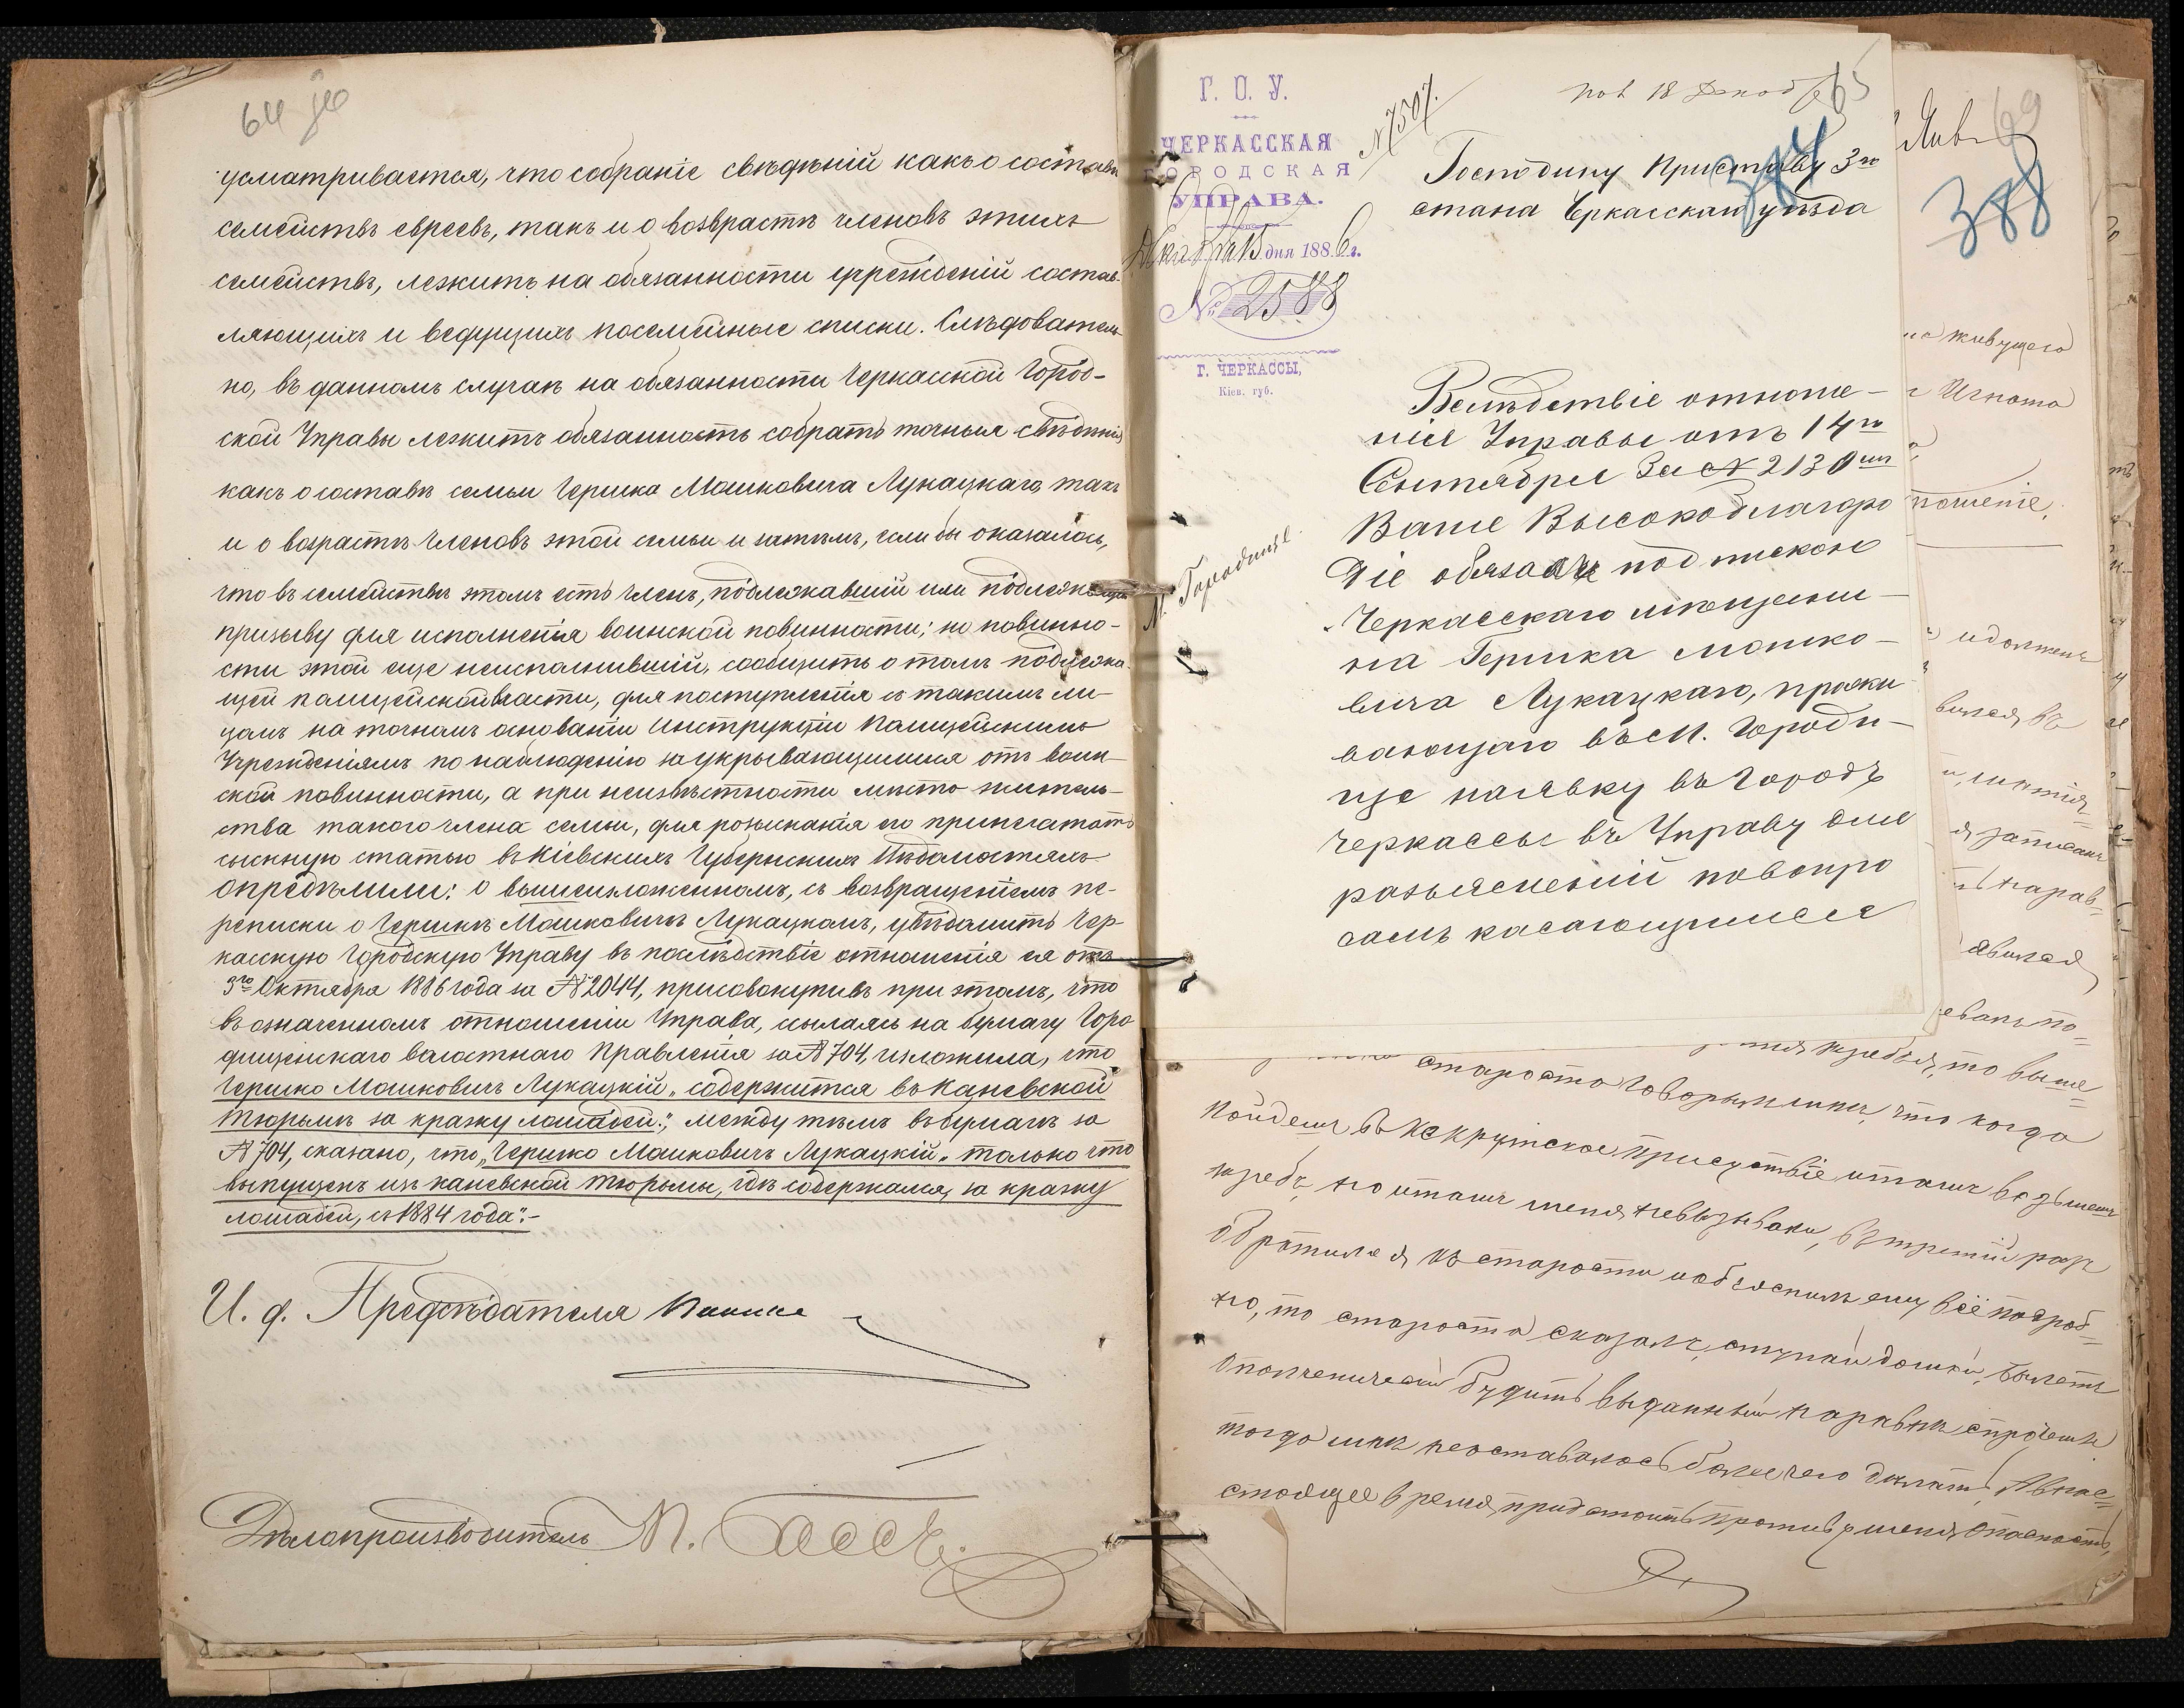 64
усматривается, что собраніе свѣдѣній какъ о составѣ
семействъ евреевъ, такъ и о возврастѣ членовъ этихъ
семействъ, лежитъ на обязанности учрежденій состав-
ляющихъ и ведущихъ посемейные списки. Слѣдователь-
но, въ данномъ случаѣ на обязанности Черкасской Город-
ской Управы лежитъ обязанность собрать точныя свѣдѣнія
какъ о составѣ семьи Гершка Мошковича Лукацкаго, такъ
и о возрастѣ членовъ этой семьи и затѣмъ, если бы оказалось,
что въ семействѣ этомъ есть членъ, подлежавшій или подлежащій
призыву для исполненія воинской повинности; но повинно-
сти этой еще неисполнившій, сообщить о томъ подлежа-
щей полицейской власти, для поступленія съ такимъ ли-
цомъ на точномъ основаніи Инструкціи Полицейскимъ
Учрежденіямъ по наблюденію за укрывающимися отъ воин-
ской повинности, а при неизвѣстности мѣсто жительст-
ства такого члена семьи, для розысканія его припечатать
сыскную статью въ Кіевскихъ Губернскихъ Вѣдомостяхъ
опредѣлили: о вышеизложенномъ, съ возвращеніемъ пе-
реписки о Гершкѣ Мошковичѣ Лукацкомъ, увѣдомить Чер-
касскую Городскую Управу въ послѣдствіе отношенія ея отъ
3го Октября 1886 года за № 2044, присовокупивъ при этомъ, что
въ означенномъ отношеніи Управа, ссылаясь на бумагу Горо-
дищенскаго волостнаго Правленія за № 704, изложила, что
Гершко Мошковичъ Лукацкій „содержится въ Каневской
тюрьмѣ за кражу лошадей“; между тѣмъ въ бумагѣ за
№ 704, сказано, что „Гершко Мошковичъ Лукацкій„ только что
выпущенъ изъ каневской тюрьмы, гдѣ содержался, за кражу
лошадей, съ 1884 года“.-
И. д. Предсѣдателя
Дѣлопроизводитель
Г. О. У.
ЧЕРКАССКАЯ
ГОРОДСКАЯ
УПРАВА.
Декабря 15 дня 1886 г.
№ 2588
Г. ЧЕРКАССЫ,
Кіев. губ.
№ 7507.
пол 18 Декабр
65
384
Господину Приставу 3го
стана Черкасскаго уѣзда
М. Городище
Вслѣдствіе отноше-
ніе Управы отъ 14го
Сентября за № 2130
Ваше Высокоблагоро
діе обязали подпискою
Черкасскаго мѣщани-
на Гершка Мошко-
вича Лукацкаго, прожи-
вающаго въ М. Городи-
ще наявку въ Городъ
Черкассы въ Управу для
разъясненій повопро
самъ касающимся
69
388
живущего
Игната
ношеніе,
идолженъ
вился въ
записанъ
нарав-
явился
староста говорилъ мнѣ, что когда
пойдешъ въ некрутское Присуствіе итамъ возьмешъ
жребъ, но итамъ меня невызывали, въ третій разъ
обратился къ старости иобъяснилъ ему всё подроб-
но, то староста сказалъ, ступай домой, билетъ
ополченический будитъ выданный наравнѣ спрочими
тогда мнѣ неоставалось более чего дѣлать, Авнас-
стоящее время предстоитъ противъ меня опасность,